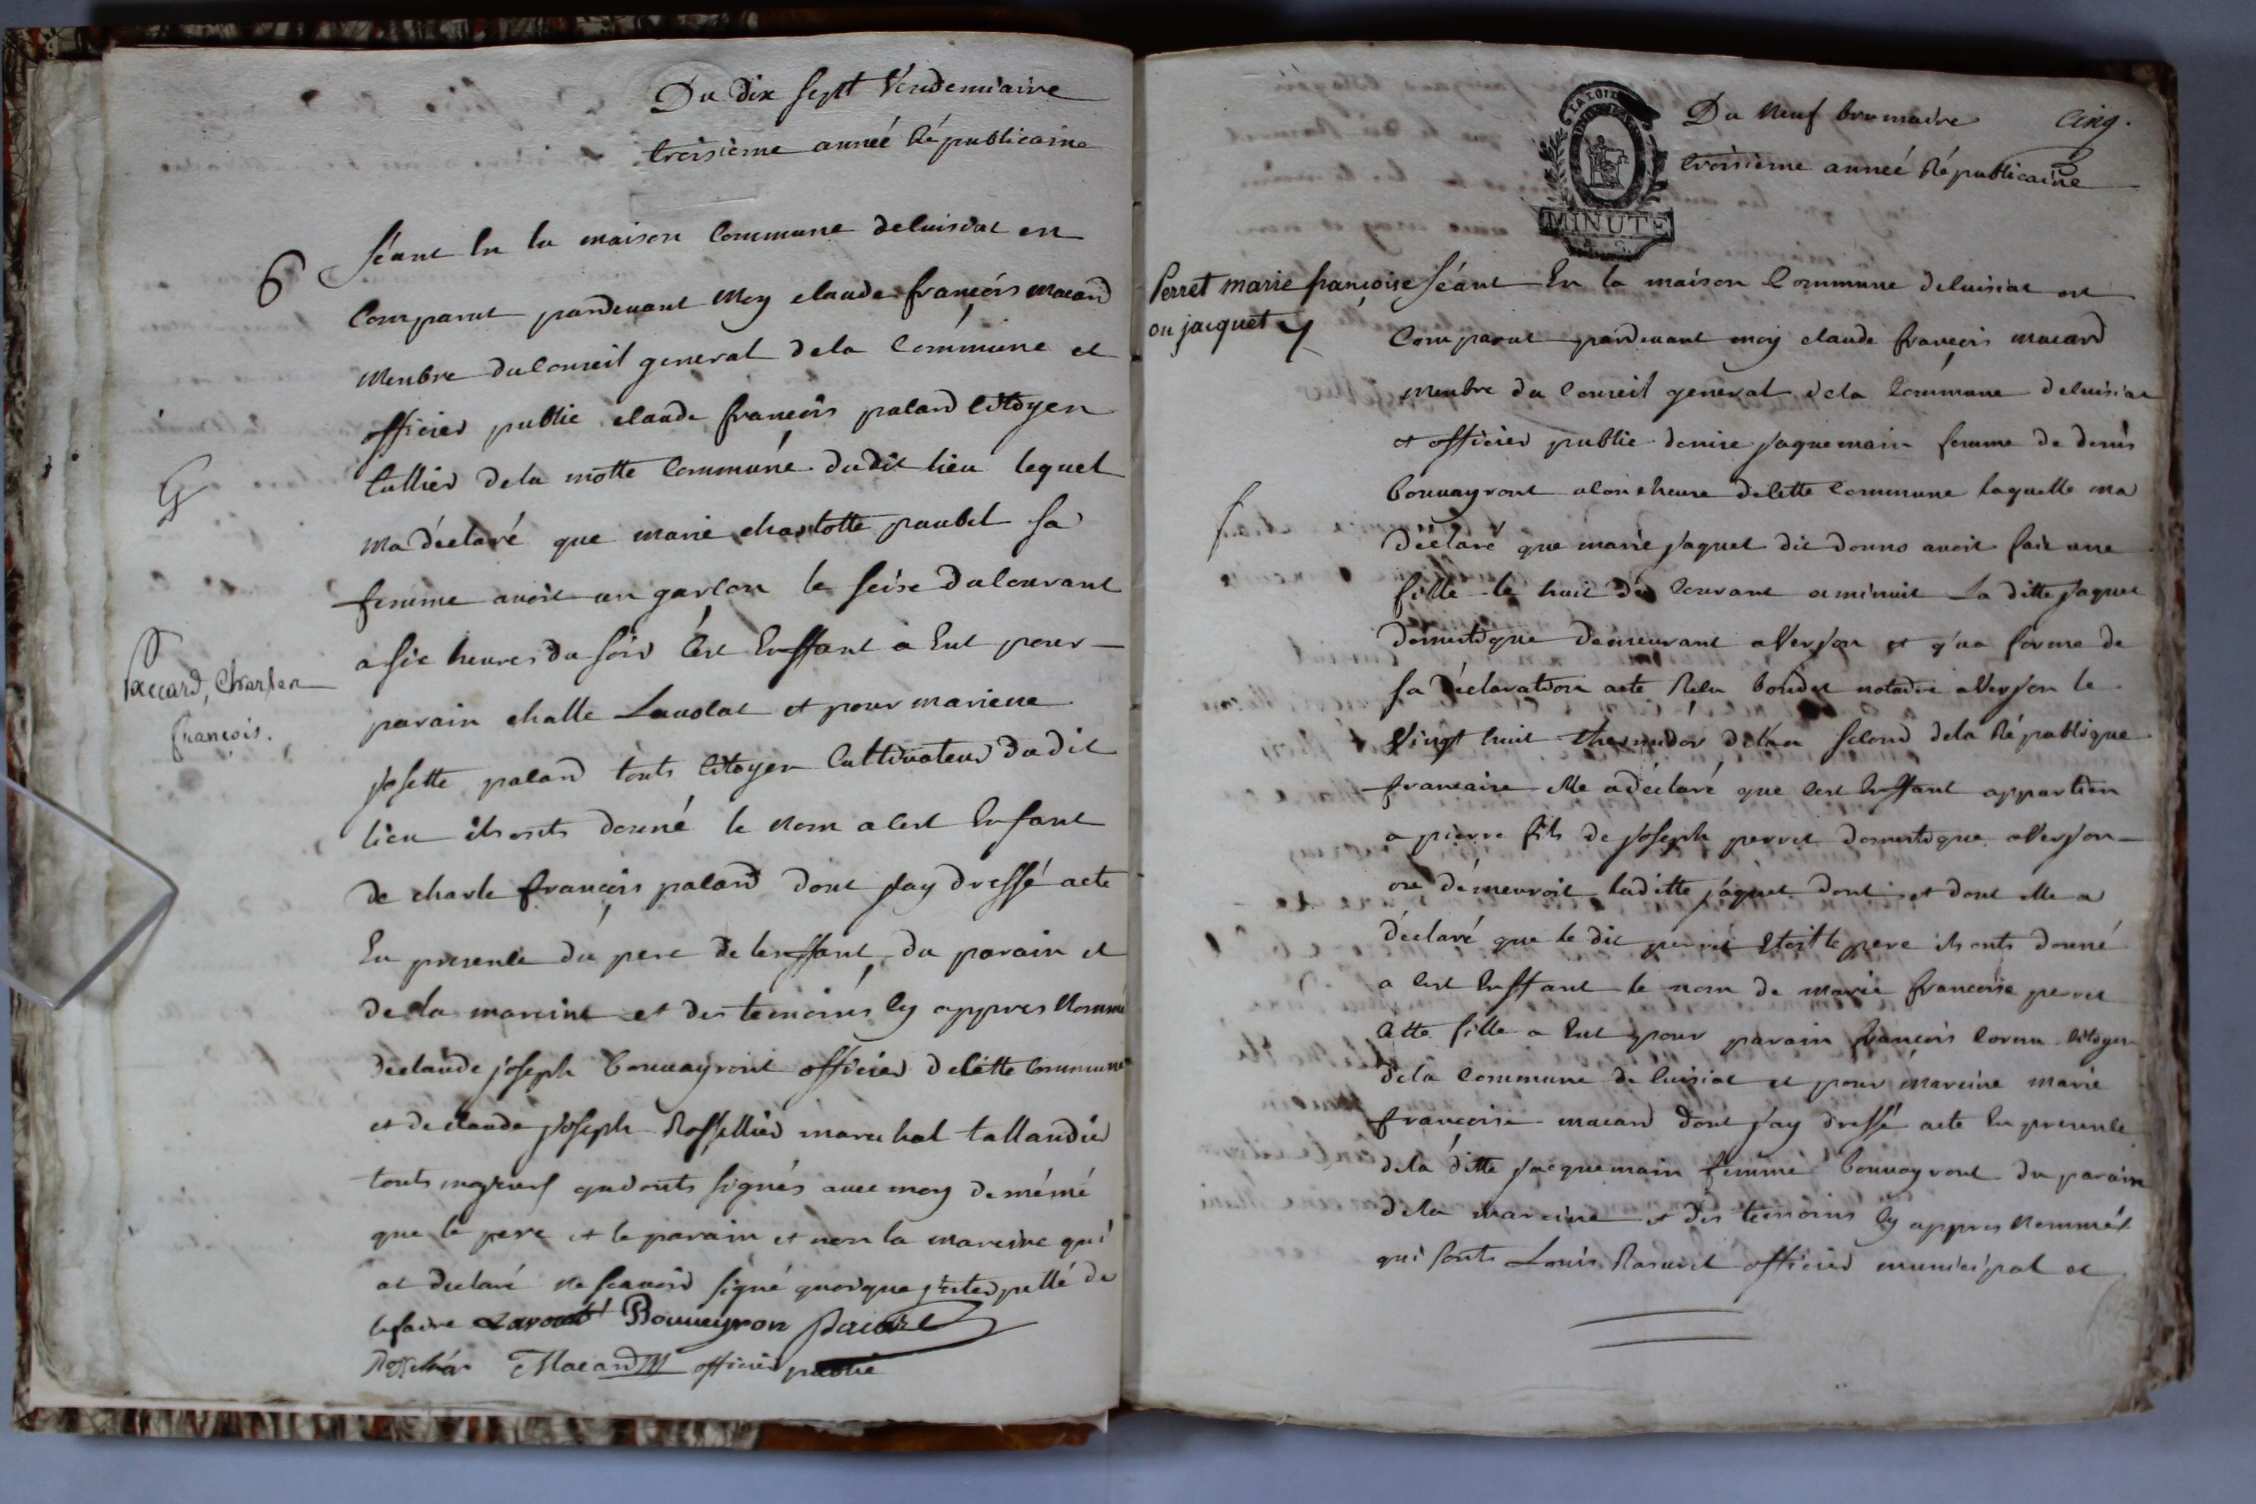 Du dix sept Vendemiaire
troisième anneé Républicaine
6
séant En la maison Commune deluisiat est
Comparut pardevant moy claude françois macard
membre du Conseil general dela Commune et
officier public claude françois palard Citoyen
tallier dela motte Commune dudit lieu lequel
ma déclaré que marie charlotte paubel sa
femme avoit un garcon le seise du Courant
a sie heures du soir Cest Enffant a Eut pour
parain challe Lavolat et pour mareine
josette palard touts Citoyen Cultivateur dudit
lieu ils onts donné le nom a Cest Enfant
Paccard, Charles
françois.
de charle françois palard dont jay dressé acte
En presence du pere de lenffant, du parain et
de la mareine et des temoins Cy appres Nommé
declaude joseph bouvayront officier de Cette Commune
et de claude joseph Rossellier marechal tallandié
touts majeurs qui onts signés avec moy de même
que le pere et le parain et non la mareine qui
at declaré ne scavoir signé quoique interpellé de
lefaire Bouveyron pacard
Macard officier public
LA LOI
MINUTE
Du neuf brumaire
Cinq.
troisième anneé Républicaine
Perret marie françoise
ou jacquet
séant En la maison Commune deluisiat est
Comparut pardevant moy claude françois macard
membre du Conseil general dela Commune deluisiat
et officier public denise jaquemain femme de denis
bouvayront de Cette Commune laquelle ma
déclaré que marie jaquet dit donno avoit fait une
fille le huit du Courant a minuit La ditte jaquet
domestique demeurant a Verjon et qua forme de
sa déclaration acte Relu notaire a Verjon le
Vingt huit thermidor de lan second dela République
francaise elle a déclaré que Cest Enffant appartien
a pierre fils de joseph perret domestique a Verjon
ou démeuroit laditte jaquet dont et dont elle a
déclaré que le dit perret Etoit le pere ils onts donné
a Cest Enffant le nom de marie francoise perret
Cette fille a Eut pour parain françois Citoyen
dela Commune de luisiat et pour mareine marie
francoise macard dont jay dressé acte En presence
dela ditte jacquemain femme bouvayront du parain
dela mareine et des temoins Cy appres nommés
qui sonts Louis officier municipal et